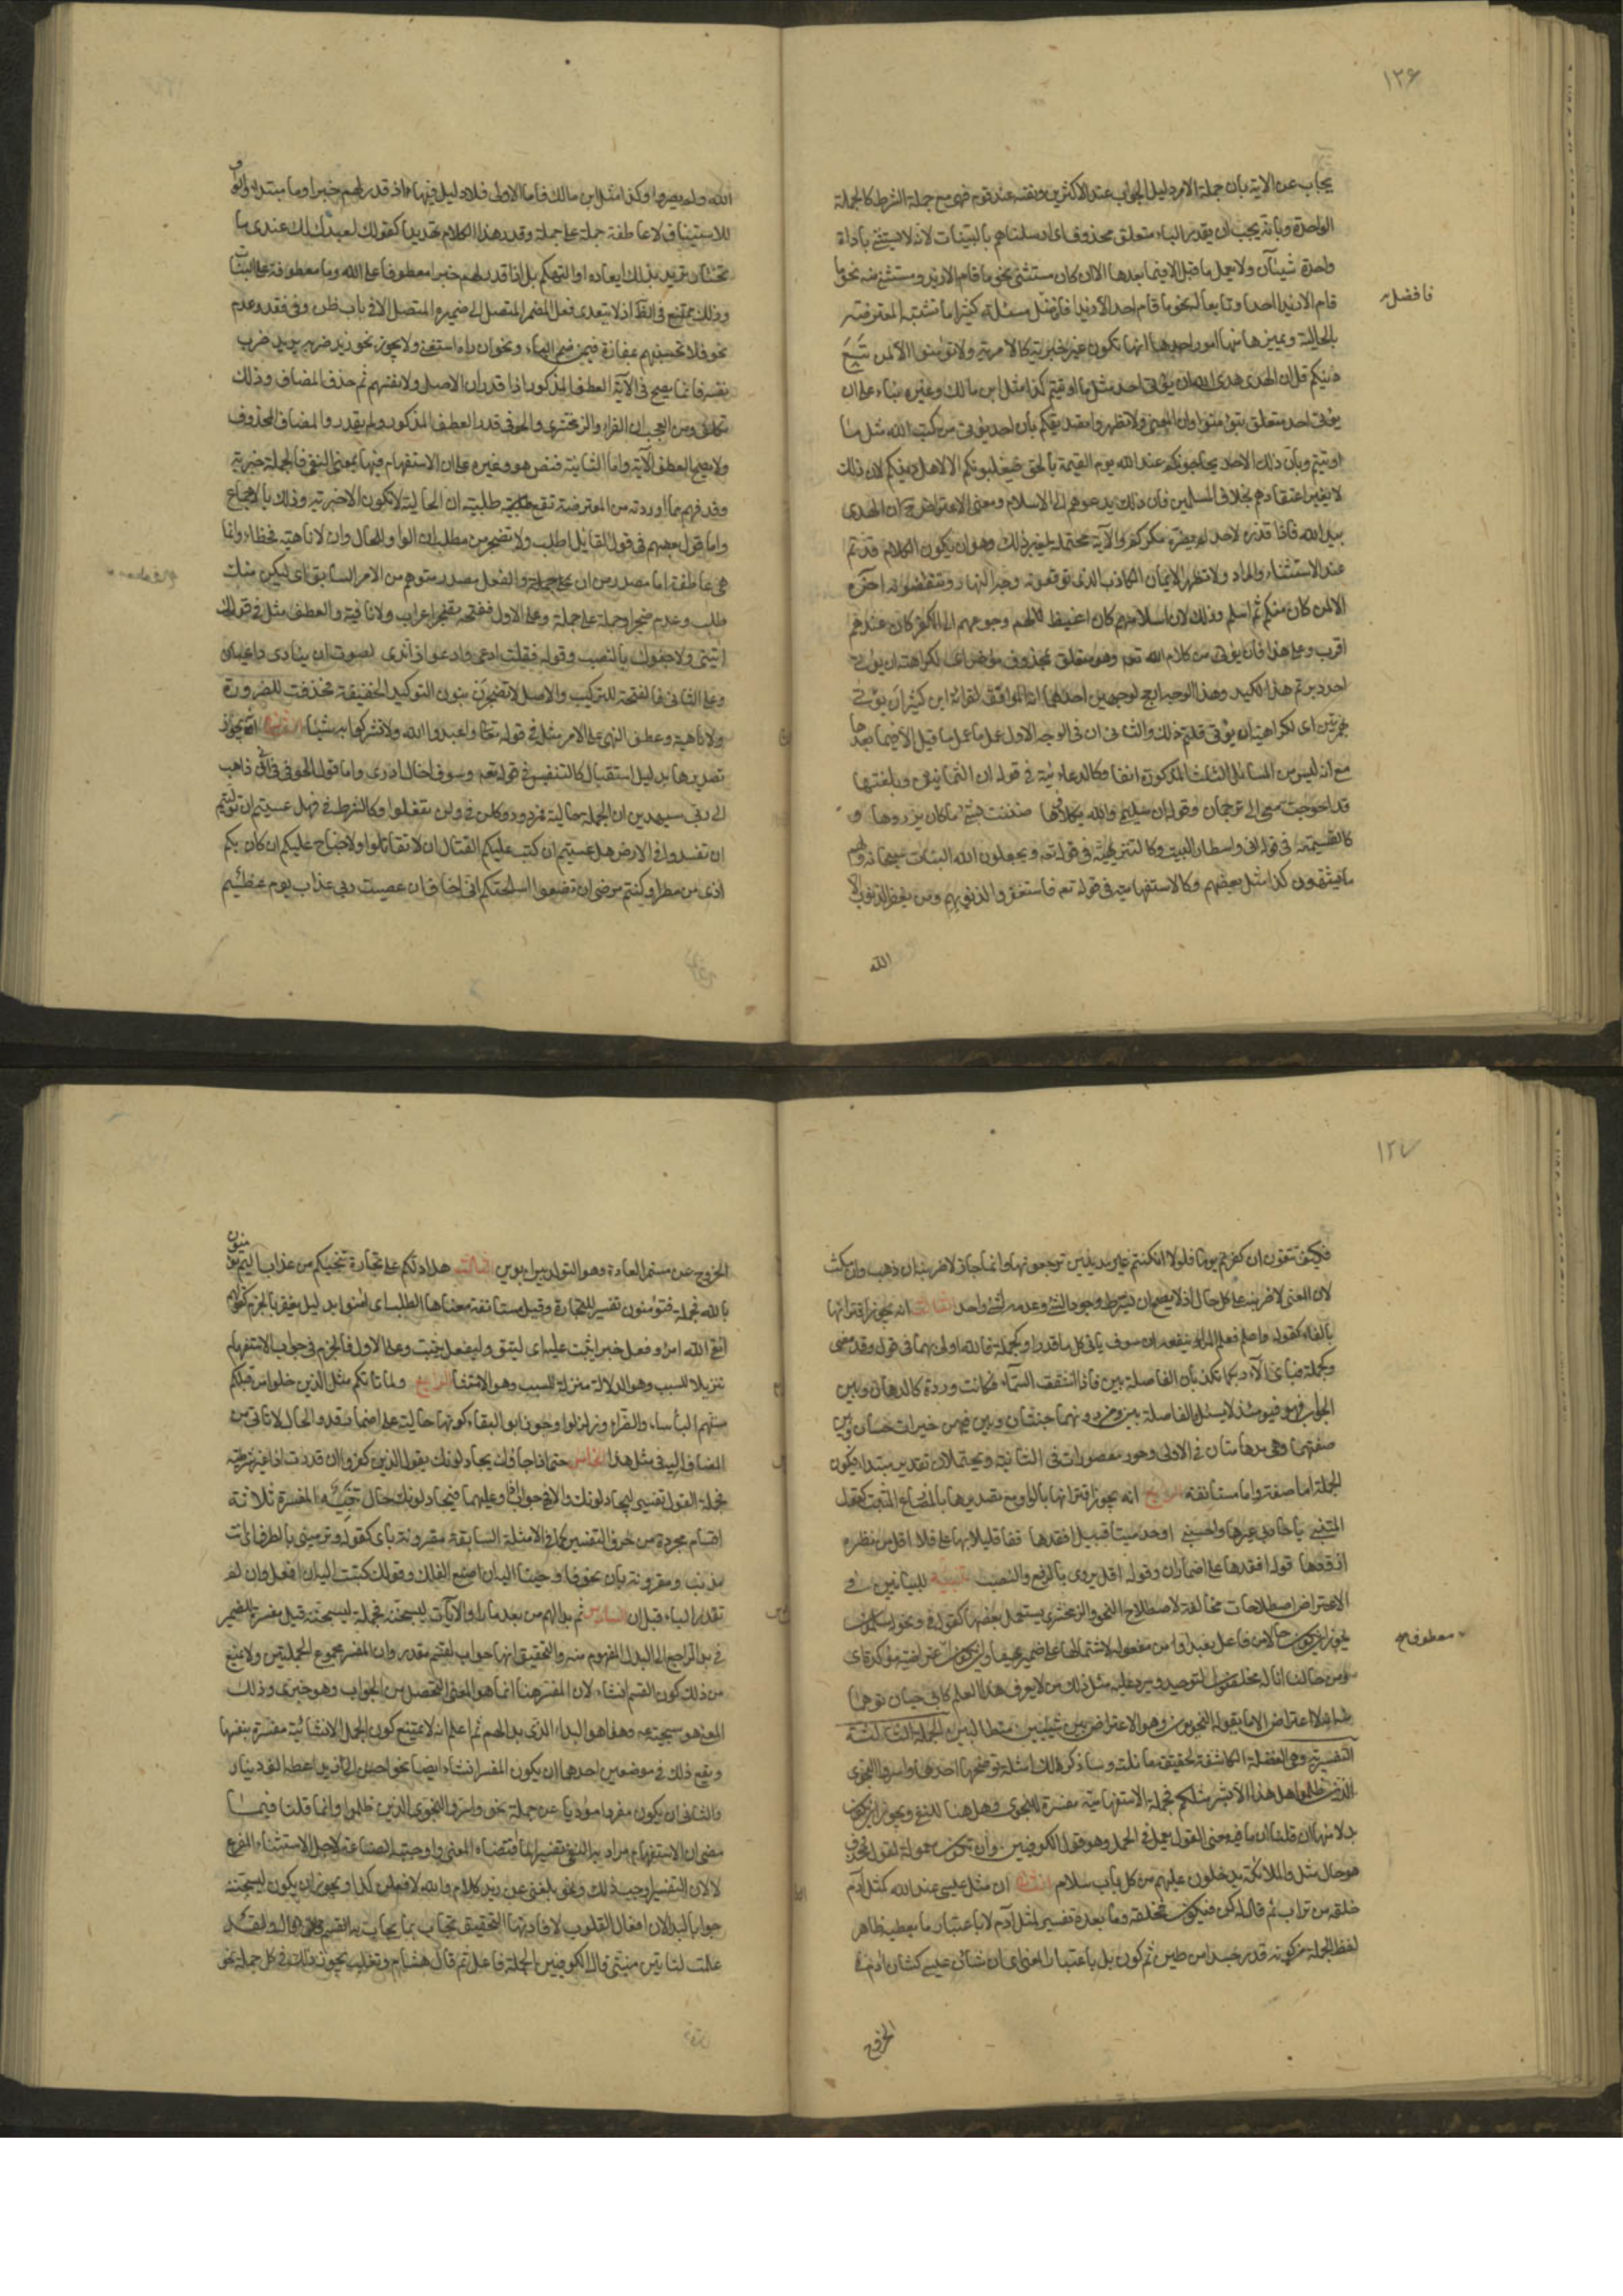 ١٢۶
يجاب عن الاية بان جملة الامر دليل الجواب عند الاكثرين ونفسه عند قوم فهى مع جملة الشرط كالجملة
الواحدة وبانه يجب ان يقدر للباء متعلق محذوف اى ارسلناهم بالبينات لانه لا يستثنى باداة
واحدة شيئان ولا يعمل ما قبل الا فيما بعدها الا ان كان مستثنى نحو ما قام الا زيد ومستثنى منه نحو ما
قام الا زيدا احد او تابعا له نحو ما قام احد الا زيدا فاضل مسئلة كثيرا ما تشتبه المعترضة
فافضل
بالحالية ويميزها منها امور احدها انها تكون غير خبرية كالامرية ولا تؤمنوا الا لمن تبع
دينكم قل ان الهدى هدى الله ان يؤتى احد مثل ما اوتيتم كذا مثل ابن مالك وغيره بناء على ان
يؤتى احد متعلق بتؤمنوا وان المعنى ولا تظهروا تصديقكم بان احد يؤتى من كتب الله مثل ما
اوتيتم وبان ذلك الاحد يحاجونكم عند الله يوم القيمة بالحق فيغلبونكم الا لاهل دينكم لان ذلك
لا يغير اعتقادهم بخلاف المسلمين فان ذلك يدعوهم الى الاسلام ومعنى الاعتراض ح ان الهدى
بيد الله فاذا قدره لاحد لم يضره مكركم والآية محتملة لغير ذلك وهو ان يكون الكلام قد تم
عند الاستثناء والمراد ولا تظهروا الايمان الكاذب الذى توقعونه وجه النهار وتنقضونه آخره
الا لمن كان منكم ثم اسلم وذلك لان اسلامهم كان اغيظ لهم ورجوعهم الى الكفر كان عندهم
اقرب وعلى هذا فان يؤتى من كلام الله تع وهو متعلق بمحذوف مؤخر اى لكراهته ان يؤتى
احد دبرتم هذا الكيد وهذا الوجه ارجح لوجهين احدهما انه الموافق لقراءة ابن كثير أأن يؤتى
بهمزتين اى لكراهية ان يؤتى قلتم ذلك والثانى ان فى الوجه الاول عمل ما قبل الا فيما بعدها
مع انه ليس من المسائل الثلث المذكورة انفا وكالدعائية فى قوله ان الثمانين وبلغتها
قد احوجت سمعى الى ترجمان وقوله ان سليمى والله يكلأها ضننت بشئ ما كان يرزؤها و
كالقسمية فى قوله انى واسطار البيت وكالتنزيهية فى قوله تع ويجعلون لله البنات سبحانه ولهم
ما يشتهون كذا مثل بعضهم وكالاستفهامية فى قوله تع فاستغفروا لذنوبهم ومن يغفر الذنوب الا
الله
الله ولم يصروا وكذا مثل ابن مالك فاما الاولى فلا دليل فيها اذ قدر لهم خبرا وما مبتدا والواو
للاستيناف لا عاطفة جملة على جملة وقدر هذا الكلام تهديدا كقولك لعبدك لك عندى ما
تختار تريد بذلك ايعاده او التهكم بل اذا قدر لهم خبرا معطوفا على الله وما معطوفة على البنات
وذلك ممتنع فى الظ اذ لا يتعدى فعل المضمر المتصل الى ضميره المتصل الا فى باب ظن وفى فقد وعدم
نحو فلا تحسبنهم بمفازة فيمن ضم الباء ونحو ان رآه استغنى ولا يجوز نحو زيد ضربه يريد ضرب
نفسه فانما يصح فى الآية العطف المذكور اذا قدر ان الاصل ولانفسهم ثم حذف المضاف وذلك
تكلف ومن العجب ان الفراء والزمخشرى والحوفى قدر العطف المذكور ولم يقدروا المضاف المحذوف
ولا يصح العطف الا به واما الثانية فنص هو وغيره على ان الاستفهام فيها بمعنى النفى فالجملة خبرية
وقد فهم مما اوردته من المعترضة تقع طلبية ان الحالية لا تكون الا خبرية وذلك بالاجماع
واما قول بعضهم فى قول القايل اطلب ولا تضجر من مطلب ان الواو للحال وان لا ناهية فخطاء وانما
هى عاطفة اما مصدرا من ان والفعل مصدر متوهم من الامر السابق اى ليكن منك
طلب وعدم ضجر او جملة على جملة وعلى الاول ففتحة تضجر اعراب ولا نافية والعطف مثله فى قولك
ائتنى ولا جفوك بالنصب وقوله فقلت ادعى وادعو ان اندى لصوت ان ينادى داعيان
وعلى الثانى فالفتحة للتركيب والاصل لا تضجرن بنون التوكيد الخفيفة فحذفت للضرورة
ولا ناهية وعطف النهى على الامر مثله فى قوله تعا واعبدوا الله ولا تشركوا به شيئا الثانى انه يجوز
تصديرها بدليل استقبال كالتنفيس فى قوله وسوف اخال ادرى واما قول الحوفى فى انى ذاهب
الى ربى سيهدين ان الجملة حالية فمردود وكلن فى ولن تفعلوا وكالشرط فى فهل عسيتم ان توليتم
ان تفسدوا فى الارض هل عسيتم ان كتب عليكم القتال ان لا تقاتلوا ولا جناح عليكم ان كان بكم
اذى من مطر او كنتم مرضى ان تضعوا اسلحتكم انى اخاف ان عصيت ربى عذاب يوم عظيم
١٢٧
فكيف تتقون ان كفرتم يوما فلولا ان كنتم غير مدينين ترجعونها وانما جاز لاضربنه ان ذهب وان مكث
لان المعنى لاضربنه على كل حال اذ لا يصح ان يشترط وجود الشئ وعدمه لشئ واحد الثالث انه يجوز اقترانها
بالفاء كقوله واعلم فعلم المرء ينفعه ان سوف ياتى كل ما قدرا وكجملة فالله اولى بهما فى قول وقد مضى
وكجملة فباى آلاء ربكما تكذبان الفاصلة بين فاذا انشقت السماء فكانت وردة كالدهان وبين
الجواب وهو فيومئذ لا يسئل والفاصلة بين ومن دونهما جنتان وبين فيهن خيرات حسان وبين
صفتهما وهى مدهامتان فى الاولى وحور مقصورات فى الثانية ويحتملان تقدير مبتدا فيكون
الجملة اما صفة واما مستانفة الرابع انه يجوز اقترانها بالواو مع تصديرها بالمضارع المثبت كقول
المتنبى يا حاديى عيرها واحسبنى اوجد ميتا قبيل افقدها قفا قليلا بها على فلا اقل من نظرة
ازودها قوله افقدها على اضمار ان وقوله اقل يروى بالرفع والنصب تنبيه للبيانيين فى
الاعتراض اصطلاحات مخالفة لاصطلاح النحو والزمخشرى يستعمل بعضها كقوله فى ونحن له مسلمون
يجوز ان يكون حالا من فاعل نعبد او من مفعوله لاشتمالها على ضميريهما وان يكون اعتراضية مؤكدة اى
معطوفة
ومن حالنا انا له مخلصون التوحيد ويرد عليه مثل ذلك من لا يعرف هذا العلم كابى حيان توهما
منه انه لا اعتراض الا ما يقوله النحويون وهو الاعتراض بين شيئين متطالبين الجملة الثالثة
التفسيرية وهى الفضلة الكاشفة لحقيقة ما تليه وساذكر لها امثلة توضحها احدها واسروا النجوى
الذين ظلموا هل هذا الا بشر مثلكم فجملة الاستفهامية مفسرة للنجوى وهل هنا للنفى ويجوز ان يكون
بدلا منها ان قلنا ان ما فيه معنى القول يعمل فى الجمل وهو قول الكوفيين وان تكون معمولة لقول محذوف
هو حال مثل والملائكة يدخلون عليهم من كل باب سلام الثانى ان مثل عيسى عند الله كمثل آدم
خلقه من تراب ثم قال له كن فيكون فخلقه وما بعده تفسير لمثل آدم لا باعتبار ما يعطيه ظاهر
لفظ الجملة من كونه قدر جسدا من طين ثم كون بل باعتبار المعنى اى ان شان عيسى كشان آدم فى
الخروج
الخروج عن مستمر العادة وهو التولد بين ابوين الثالث هل ادلكم على تجارة تنجيكم من عذاب اليم تؤمنون
بالله فجملة تؤمنون تفسير للتجارة وقيل مستانفة معناها الطلب اى امنوا بدليل يغفر بالجزم كقولهم
اتقى الله امرؤ فعل خيرا يثب عليه اى ليتق وليفعل يثب وعلى الاول فالجزم فى جواب الاستفهام
تنزيلا للسبب وهو الدلالة منزلة المسبب وهو الامتثال الرابع ولما ياتكم مثل الذين خلوا من قبلكم
مستهم البأساء والضراء وزلزلوا وجوز ابو البقاء كونها حالية على اضمار قد والحال لا تاتى من
المضاف اليه فى مثل هذا الخامس حتى اذا جاؤك يجادلونك يقول الذين كفروا ان قدرت اذا غير شرطية
فجملة القول تفسير ليجادلونك والا فهى جواب اذا وعليهما فيجادلونك حال تنبيه المفسرة ثلاثة
اقسام مجردة من حرف التفسير كما فى الامثلة السابقة ومقرونة باى كقوله وترميننى بالطرف اى انت
مذنب ومقرونة بان نحو فاوحينا اليه ان اصنع الفلك وقولك كتبت اليه ان افعل وان لم
تقدر الباء قبل ان السادس ثم بدا لهم من بعد ما راوا الآيات ليسجننه فجملة ليسجننه قيل مفسرة للضمير
فى بدا الراجع الى البداء المفهوم منه والتحقيق انها جواب لقسم مقدر وان المفسر مجموع الجملتين ولا يمنع
من ذلك كون القسم انشاء لان المفسر هنا انما هو المعنى المتحصل من الجواب وهو خبرى وذلك
المعنى هو سجنه عه وهذا هو البداء الذى بدا لهم ثم اعلم انه لا يمتنع كون الجمل الانشائية مفسرة بنفسها
ويقع ذلك فى موضعين احدهما ان يكون المفسر انشاء ايضا نحو احسن الى زيد اعطه الف دينار
والثانى ان يكون مفردا مؤديا عن جملة نحو واسروا النجوى الذين ظلموا وانما قلنا فيما
مضى ان الاستفهام مراد به النفى تفسيرا لما اقتضاه المعنى واوجبته الصناعة لاجل الاستثناء المفرغ
لا لان التفسير اوجب ذلك ونحو بلغنى عن زيد كلام والله لافعلن كذا ويجوز ان يكون ليسجننه
جوابا لبدا لان افعال القلوب لافادتها التحقيق تجاب بما يجاب به القسم قال ولقد
علمت لتاتين منيتى وقال الكوفيين الجملة فاعل ثم قال هشام وثعلب يجوز ذلك فى كل جملة نحو